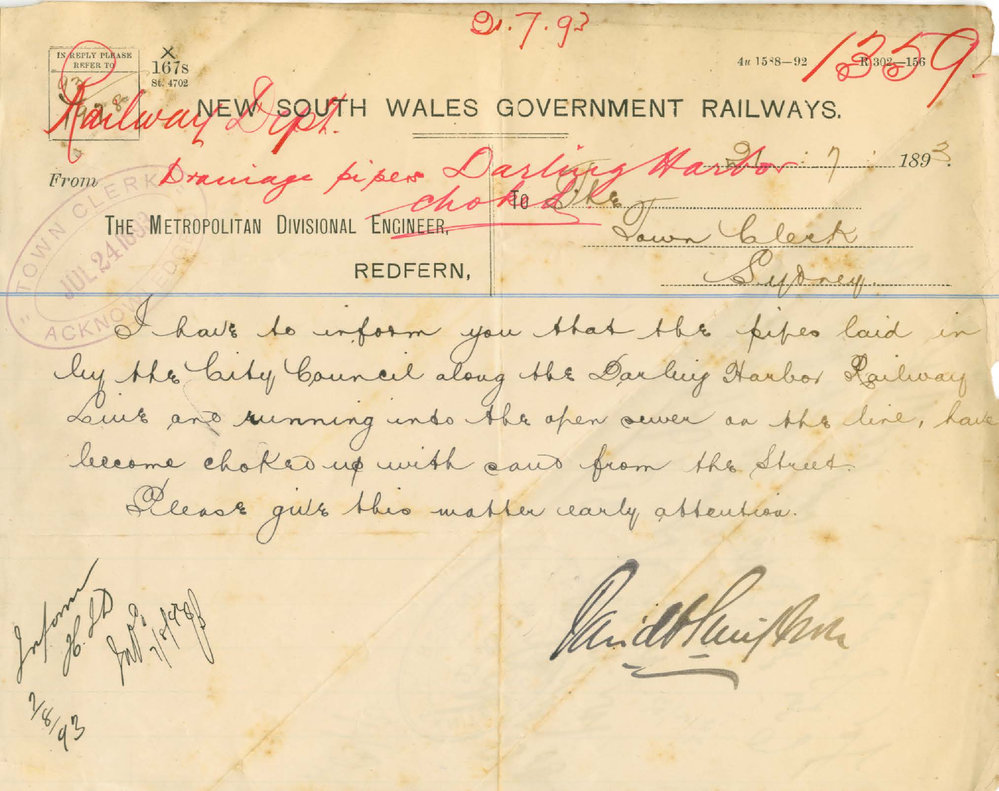 21.7.93
1359
IN REPLY PLEASE
REFER TO
X
167s
St. 4702
4u 15*8—92
R 302—156
Railway Dept.
NEW SOUTH WALES GOVERNMENT RAILWAYS.
Drainage pipes Darling Harbor
choked
21 . 7 . 1893.
From
To The
THE METROPOLITAN DIVISIONAL ENGINEER,
Town Clerk
REDFERN,
Sydney.
TOWN CLERK
JUL 24 1893
ACKNOWLEDGED
I have to inform you that the pipes laid in
by the City Council along the Darling Harbor Railway
Line and running into the open sewer on the line, have
become choked up with sand from the Street.
Please give this matter early attention.
Inform
2/8/93